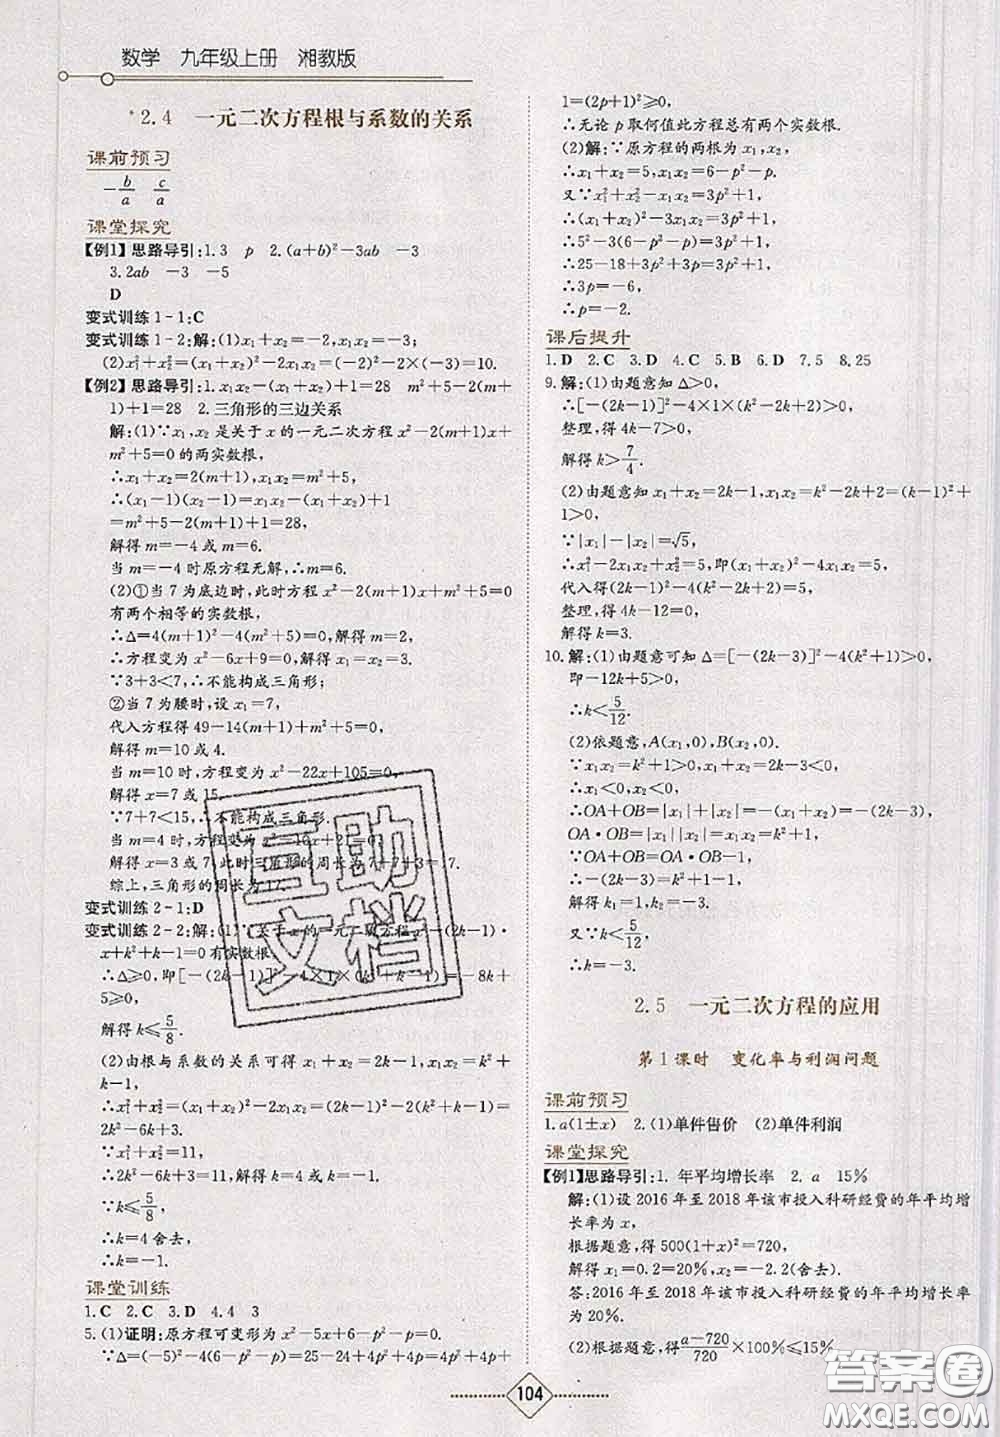 数学 九年级上册 湘教版
*2.4 一元二次方程根与系数的关系
课前预习
-b/a c/a
课堂探究
【例1】思路导引:1.3 p 2.(a+b)²-3ab -3
3.2ab -3 -5
D
变式训练1-1:C
变式训练1-2:解:(1)x₁+x₂=-2,x₁x₂=-3;
(2)x₁²+x₂²=(x₁+x₂)²-2x₁x₂=(-2)²-2×(-3)=10.
【例2】思路导引:1.x₁x₂-(x₁+x₂)+1=28 m²+5-2(m+
1)+1=28 2.三角形的三边关系
解:(1)∵x₁,x₂是关于x的一元二次方程x²-2(m+1)x+
m²+5=0的两实数根,
∴x₁+x₂=2(m+1),x₁x₂=m²+5,
∴(x₁-1)(x₂-1)=x₁x₂-(x₁+x₂)+1
=m²+5-2(m+1)+1=28,
解得m=-4或m=6.
当m=-4时原方程无解,∴m=6.
(2)①当7为底边时,此时方程x²-2(m+1)x+m²+5=0
有两个相等的实数根,
∴Δ=4(m+1)²-4(m²+5)=0,解得m=2,
∴方程变为x²-6x+9=0,解得x₁=x₂=3.
∵3+3<7,∴不能构成三角形;
②当7为腰时,设x₁=7,
代入方程得49-14(m+1)+m²+5=0,
解得m=10或4.
当m=10时,方程变为x²-22x+105=0,
解得x=7或15.
∵7+7<15,∴不能构成三角形.
当m=4时,方程变为x²-10x+21=0,
解得x=3或7,此时三角形的周长为7+7+3=17.
综上,三角形的周长为17.
变式训练2-1:D
变式训练2-2:解:(1)∵关于x的一元二次方程x²-(2k-1)·
x+k²+k-1=0有实数根,
∴Δ≥0,即[-(2k-1)]²-4×1×(k²+k-1)=-8k+
5≥0,
解得k≤5/8.
(2)由根与系数的关系可得x₁+x₂=2k-1,x₁x₂=k²+
k-1,
∴x₁²+x₂²=(x₁+x₂)²-2x₁x₂=(2k-1)²-2(k²+k-1)
=2k²-6k+3.
∵x₁²+x₂²=11,
∴2k²-6k+3=11,解得k=4或k=-1,
∵k≤5/8,
∴k=4舍去,
∴k=-1.
课堂训练
1.C 2.C 3.D 4.4 3
5.(1)证明:原方程可变形为x²-5x+6-p²-p=0.
∵Δ=(-5)²-4(6-p²-p)=25-24+4p²+4p=4p²+4p+
1=(2p+1)²≥0,
∴无论p取何值此方程总有两个实数根.
(2)解:∵原方程的两根为x₁,x₂,
∴x₁+x₂=5,x₁x₂=6-p²-p.
又∵x₁²+x₂²-x₁x₂=3p²+1,
∴(x₁+x₂)²-3x₁x₂=3p²+1,
∴5²-3(6-p²-p)=3p²+1,
∴25-18+3p²+3p=3p²+1,
∴3p=-6,
∴p=-2.
课后提升
1.D 2.C 3.D 4.C 5.B 6.D 7.5 8.25
9.解:(1)由题意知Δ>0,
∴[-(2k-1)]²-4×1×(k²-2k+2)>0,
整理,得4k-7>0,
解得k>7/4.
(2)由题意知x₁+x₂=2k-1,x₁x₂=k²-2k+2=(k-1)²+
1>0,
∵|x₁|-|x₂|=√5,
∴x₁²-2x₁x₂+x₂²=5,即(x₁+x₂)²-4x₁x₂=5,
代入得(2k-1)²-4(k²-2k+2)=5,
整理,得4k-12=0,
解得k=3.
10.解:(1)由题意可知Δ=[-(2k-3)]²-4(k²+1)>0,
即-12k+5>0,
∴k<5/12.
(2)依题意,A(x₁,0),B(x₂,0).
∵x₁x₂=k²+1>0,x₁+x₂=2k-3<0,
∴x₁<0,x₂<0,
∴OA+OB=|x₁|+|x₂|=-(x₁+x₂)=-(2k-3),
OA·OB=|x₁||x₂|=x₁x₂=k²+1.
∵OA+OB=OA·OB-3,
∴-(2k-3)=k²+1-3,
解得k₁=1,k₂=-3.
又∵k<5/12,
∴k=-3.
2.5 一元二次方程的应用
第1课时 变化率与利润问题
课前预习
1.a(1±x) 2.(1)单件售价 (2)单件利润
课堂探究
【例1】思路导引:1.年平均增长率 2.a 15%
解:(1)设2016年至2018年该市投入科研经费的年平均增
长率为x,
根据题意,得500(1+x)²=720,
解得x₁=0.2=20%,x₂=-2.2(舍去).
答:2016年至2018年该市投入科研经费的年平均增长率
为20%.
(2)根据题意,得(a-720)/720×100%≤15%,
104
互助
文档
答案圈
MXQE.COM